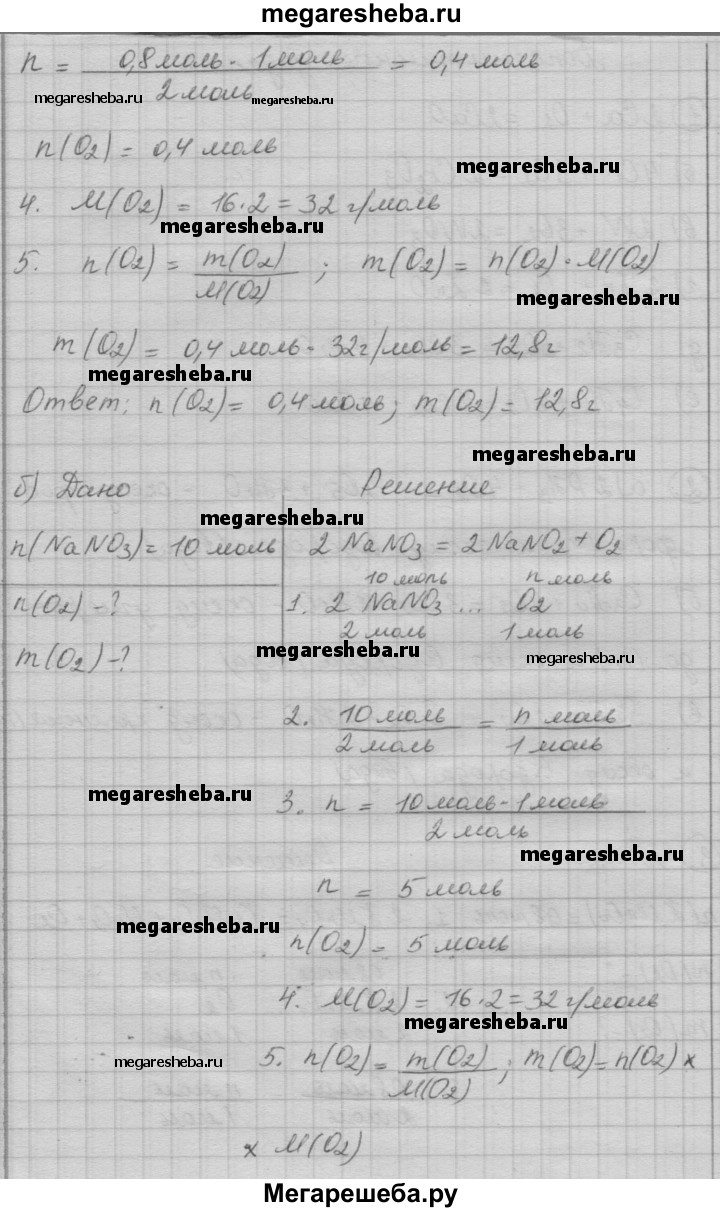 megaresheba.ru
n = 0,8 моль · 1 моль / 2 моль = 0,4 моль
megaresheba.ru megaresheba.ru
n(O₂) = 0,4 моль
megaresheba.ru
4. M(O₂) = 16·2 = 32 г/моль
megaresheba.ru
5. n(O₂) = m(O₂) / M(O₂) ; m(O₂) = n(O₂) · M(O₂)
megaresheba.ru
m(O₂) = 0,4 моль · 32 г/моль = 12,8 г
megaresheba.ru
Ответ: n(O₂) = 0,4 моль; m(O₂) = 12,8 г
megaresheba.ru
б) Дано Решение
megaresheba.ru
n(NaNO₃) = 10 моль 2 NaNO₃ = 2 NaNO₂ + O₂
10 моль n моль
n(O₂) - ? 1. 2 NaNO₃ ... O₂
2 моль 1 моль
m(O₂) - ?
megaresheba.ru megaresheba.ru
2. 10 моль / 2 моль = n моль / 1 моль
megaresheba.ru
3. n = 10 моль · 1 моль / 2 моль
megaresheba.ru
n = 5 моль
megaresheba.ru
n(O₂) = 5 моль
4. M(O₂) = 16·2 = 32 г/моль
megaresheba.ru
megaresheba.ru
5. n(O₂) = m(O₂) / M(O₂) ; m(O₂) = n(O₂) ×
× M(O₂)
Мегарешеба.ру